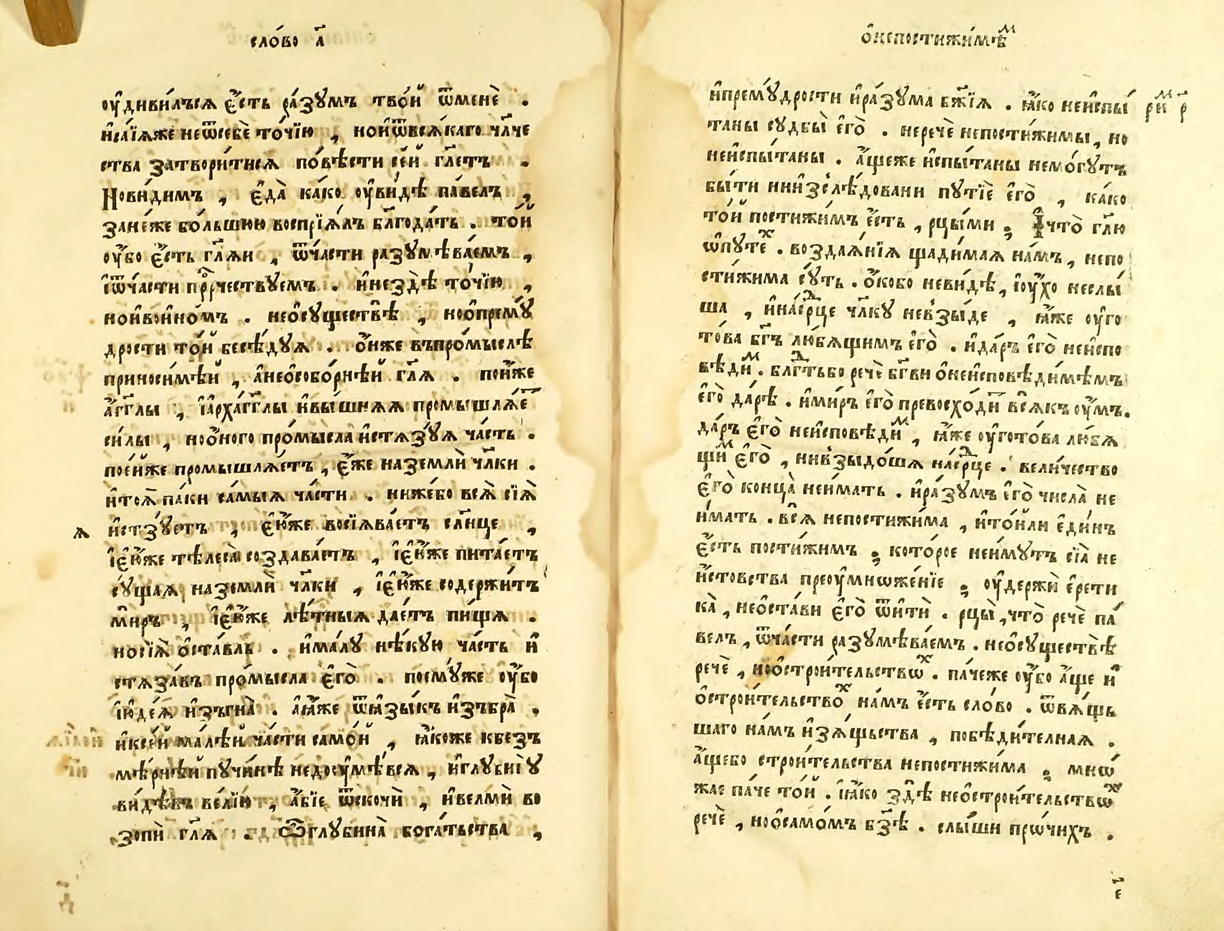 сло́во а҃
ᲂу҆диви́лъсѧ є҆́сть ра́зꙋмъ тво́й ѿменѐ .
и҆са́їѧже неѿсебѐ то́чїю , нои҆ѿвсѧ́каго чл҃че
ства затвори́тисѧ по́вѣсти се́й гл҃етъ .
Но́види́мъ , є҆да̀ ка́ко ᲂу҆ви́дѣ па́велъ ,
зане́же бо́льшюю воспрїѧ́лъ блг҃ода́ть . то́й
ᲂу҆́бо є҆́сть гл҃ѧи , ѿча́сти разꙋмѣва́емъ ,
і҆ѿча́сти прⷪ҇рчествꙋемъ . и҆незⷣѣ то́чїю ,
нои҆во́и҆но́мъ . нео҆сꙋществѣ̀ , ноѡ҆премꙋ́
дрости то́й бесѣ́дꙋѧ . о҆́нже въпро́мыслѣ
приноси́мѣй , а҆нео҆собо́рнѣй гл҃ѧ . по́йже
а҆́гг҃лы , і҆а҆рха́гг҃лы и҆вы́шнѧѧ промышлѧ́еⷮ
си́лы , ноо҆́ного про́мысла и҆стѧ́зꙋѧ ча́сть .
пое́йже промышлѧ́етъ , є҆́же наземлѝ чл҃ки .
и҆тоѧ̀ па́ки са́мыѧ ча́сти . ни́жебо всѧ̀ сїѧ̀
ѧ
и҆стз́ꙋетъ , є҆́ю́же восїѧва́етъ сл҃нце ,
і҆є҆́ю́же тѣлеса̀ создава́етъ , і҆є҆́ю́же пита́етъ
сꙋ́щаѧ наземлѝ чл҃ки , і҆є҆́ю́же содержи́тъ
ми́ръ , і҆є҆́ю́же лѣ́тныѧ дае́тъ пи́щѧ .
носїѧ̀ ѡ҆ста́вль . и҆ма́лꙋ нѣ́кꙋю ча́сть и҆
стѧза́въ про́мысла є҆гѡ̀ . посмꙋ́же ᲂу҆́бо
і҆ꙋде́ѧ и҆зъгна̀ . а҆ꙗ҆́же ѿꙗ҆зы́къ и҆зъбра̀ .
и҆ксе́й ма́лѣй ча́сти само́й , ꙗ҆́коже кбезъ
мѣ́рнѣй пꙋчи́нѣ недоꙋмѣ́всѧ , и҆глꙋбинꙋ̀
ви́дѣвъ ве́лїю , а҆́бїе ѿскочѝ , и҆ве́лми во
зопѝ гл҃ѧ . Ѽглꙋбина̀ бога́тьства ,
д҃
ѡ҆непостижи́мѣⷨ
и҆премꙋ́дрости и҆ра́зꙋма бж҃їѧ . ꙗ҆́ко неи҆спы́
риⷨ р
таны сꙋдбы̀ є҆гѡ̀ . неречѐ непостижи́мы , но
неи҆спы́таны . а҆́щеже и҆спы́таны немо́гꙋтъ
бы́ти нии҆зслѣ́довани пꙋтїѐ є҆гѡ̀ , ка́ко
то́й постижи́мъ є҆́сть , рцы́ми ; И҆что̀ гл҃ю
ѡ҆пꙋте́ⷯ . воздаѧ́нїѧ щади́маѧ на́мъ , непо
стижи́ма сꙋ́ть . о҆́кобо неви́дѣ , і҆ᲂу҆́хо неслы́
ша , и҆на́срⷣце чл҃кꙋ невзы́де , ꙗ҆́же ᲂу҆го
то́ва бг҃ъ лю́бѧщимъ є҆го̀ . и҆да́ръ є҆гѡ̀ неи҆спо
вѣ́диⷨ . блⷢ҇ть́бо речѐ бг҃ви ѡ҆неи҆сповѣди́мѣмъ
є҆гѡ̀ да́рѣ . и҆ми́ръ є҆гѡ̀ превосходѝ всѧ́къ ᲂу҆́мъ .
да́ръ є҆гѡ̀ неи҆сповѣ́диⷨ , ꙗ҆́же ᲂу҆гото́ва лю́бѧ
щиⷨ є҆го̀ , нивзыдо́шѧ на́срⷣце . вели́чество
є҆гѡ̀ конца̀ неи́мать . и҆ра́зꙋмъ є҆гѡ̀ числа̀ не
и́мать . всѧ̀ непостижи́ма , и҆то́или є҆ди́нъ
є҆́сть постижи́мъ ; кото́рое неи́мꙋтъ сїѧ̀ не
и҆́стовства преꙋмноже́нїе ; ᲂу҆держѝ є҆рети
ка̀ , неѡ҆ста́ви є҆го̀ ѿи҆тѝ . рцы̀ , что̀ речѐ па́
велъ , ѿча́сти разꙋмѣва́емъ . неѡ҆сꙋществѣ̀
речѐ , ноѡ҆строи́тельствоⷯ . па́чеже ᲂу҆́бо а҆́ще и҆
ѡ҆строи́тельствоⷯ на́мъ є҆́сть сло́во . ѿвѧ́щь
шаго на́мъ и҆зѧ́щьства , побѣди́телнаѧ .
а҆́щебо строи́тельства непостижи́ма ; мно́
жае па́че то́й . и҆ꙗ҆́ко здѣ̀ неѡ҆строи́тельствоⷯ
речѐ , ноѡ҆само́мъ бз҃ѣ . слы́ши про́чихъ .
е҃